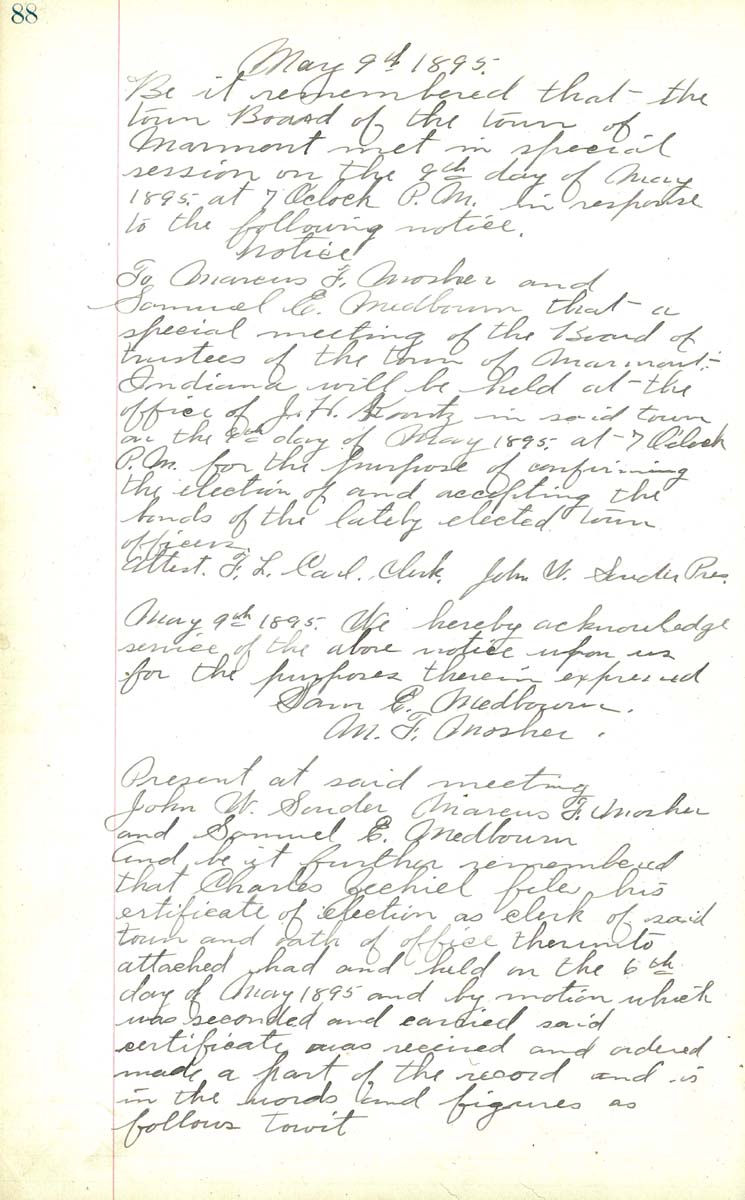 88
May 9th 1895.
Be it remembered that the
town Board of the town of
Marmont met in special
session on the 9th day of May
1895. at 7 Oclock P.M. in response
to the following notice.
Notice
To Marcus F. Mosher and
Samuel E. Medbourn that a
special meeting of the Board of
trustees of the town of Marmont
Indiana will be held at the
office of J. H. Koontz in said town
on the 9th day of May 1895. at 7 Oclock
P.M. for the purpose of confirming
the election of and accepting the
bonds of the lately elected town
officers.
Attest. F. L. Carl. Clerk. John W. Souder Pres.
May 9th 1895. We hereby acknowledge
service of the above notice upon us
for the purposes therein expressed
Sam E. Medbourn.
M. F. Mosher.
Present at said meeting
John W. Souder Marcus F. Mosher
and Samuel E. Medbourn
And be it further remembered
that Charles Zechiel files his
certificate of election as clerk of said
town and oath of office thereunto
attached had and held on the 6th
day of May 1895 and by motion which
was seconded and carried said
certificate was received and ordered
made a part of the record and is
in the words and figures as
follows towit